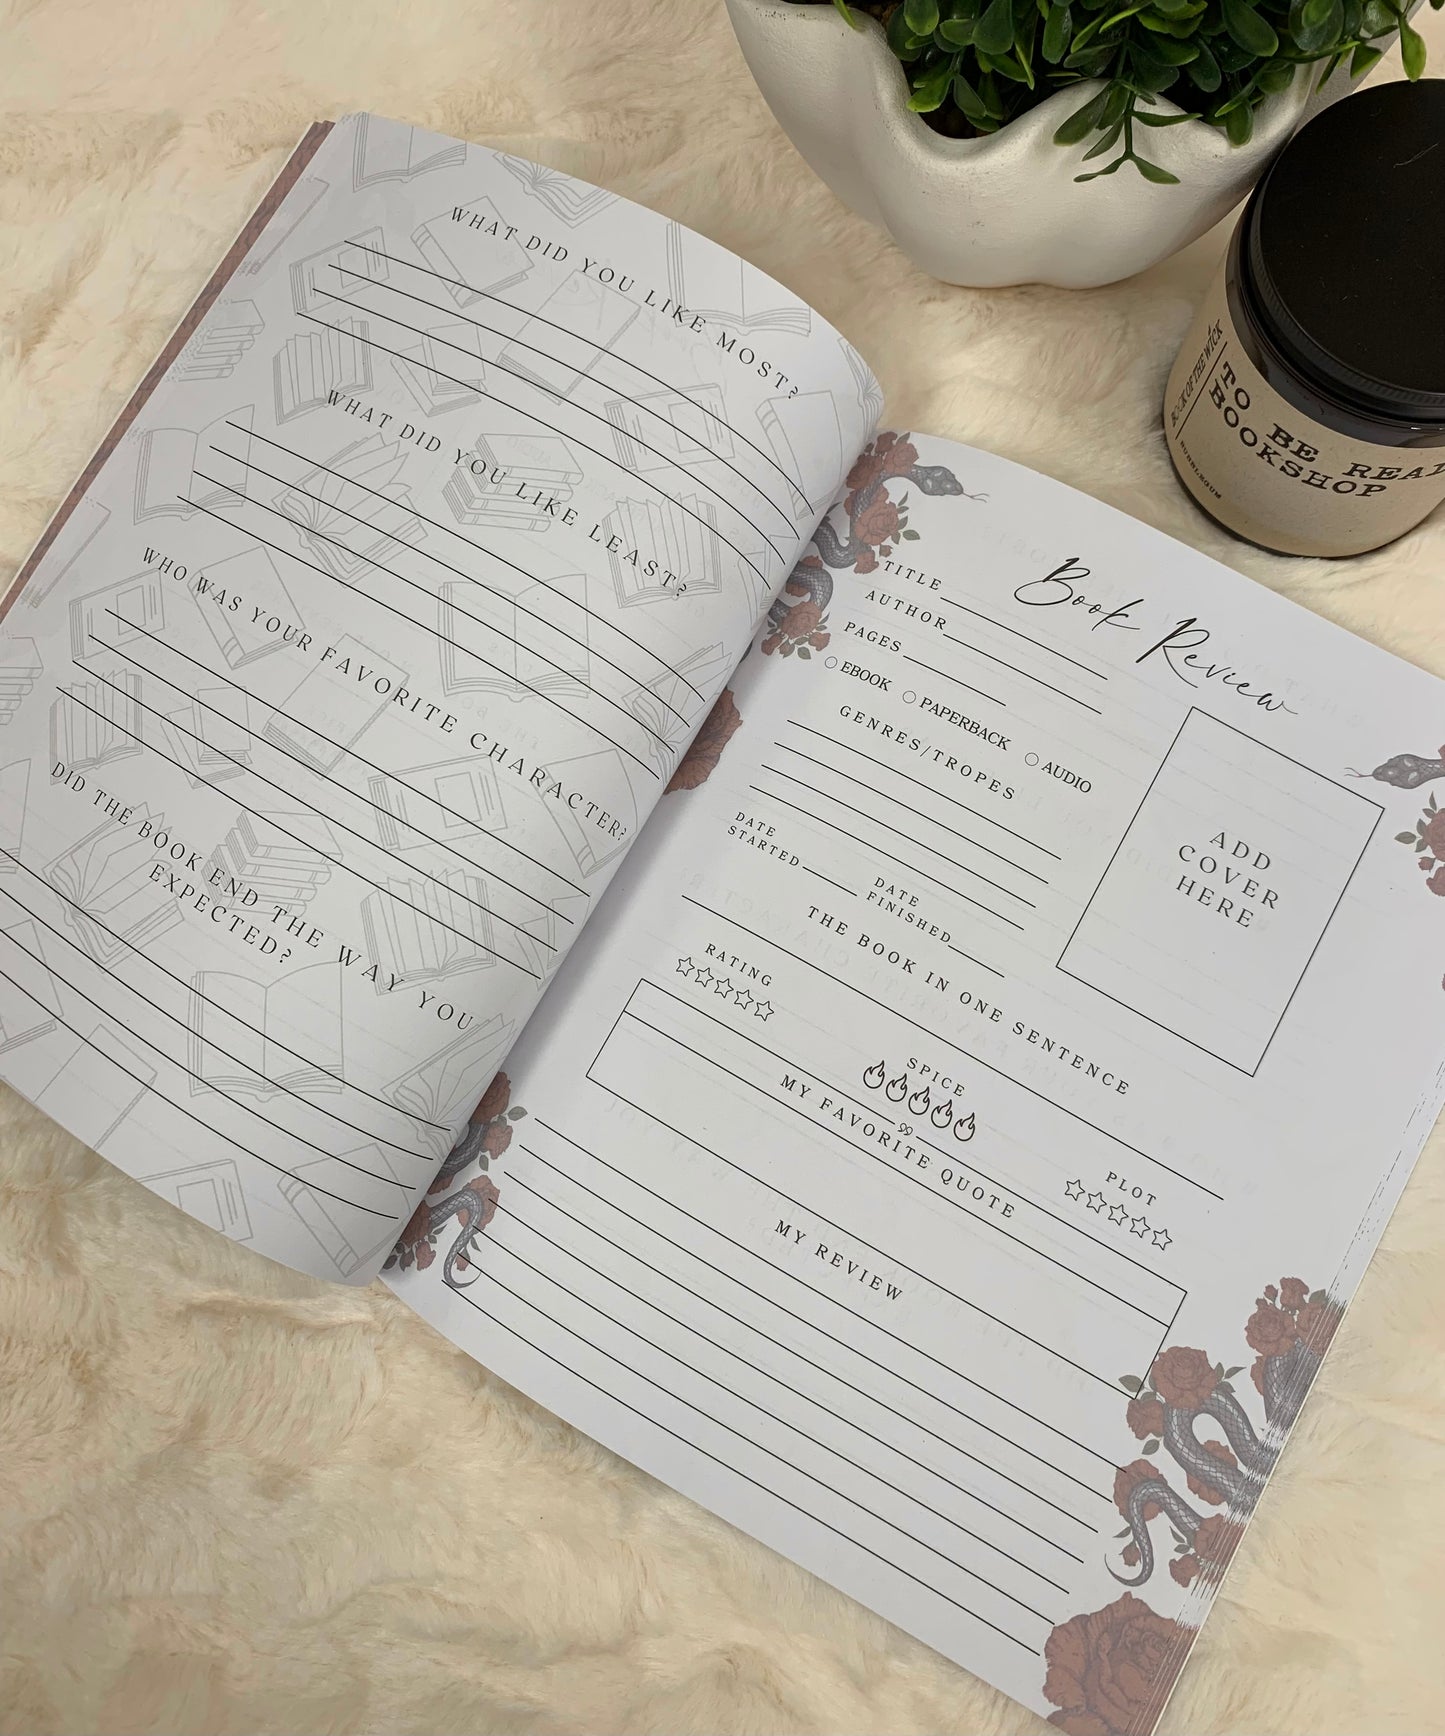 WHAT DID YOU LIKE MOST?
WHAT DID YOU LIKE LEAST?
WHO WAS YOUR FAVORITE CHARACTER?
DID THE BOOK END THE WAY YOU
EXPECTED?
Book Review
TITLE
AUTHOR
PAGES
EBOOK PAPERBACK AUDIO
GENRES/TROPES
ADD
COVER
HERE
DATE
STARTED
DATE
FINISHED
THE BOOK IN ONE SENTENCE
RATING
SPICE
PLOT
MY FAVORITE QUOTE
MY REVIEW
BOOK OF THE WICK
TO BE READ
BOOKSHOP